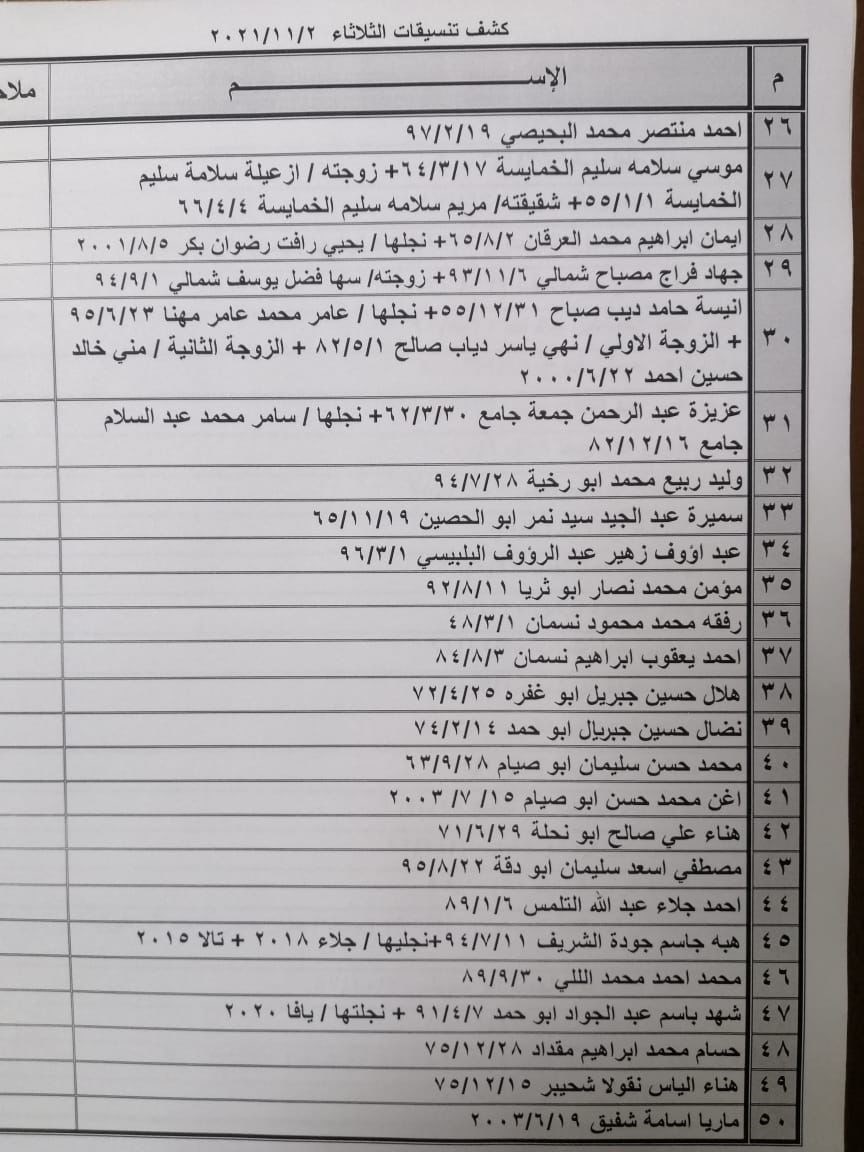 كشف تنسيقات الثلاثاء ٢٠٢١/١١/٢
م الإســــــــــــم
٢٦ احمد منتصر محمد البحيصي ٩٧/٢/١٩
٢٧ موسي سلامه سليم الخمايسة ٦٤/٣/١٧+ زوجته / ازعيلة سلامة سليم
الخمايسة ٥٥/١/١+ شقيقته/ مريم سلامه سليم الخمايسة ٦٦/٤/٤
٢٨ ايمان ابراهيم محمد العرقان ٦٥/٨/٢+ نجلها / يحيي رافت رضوان بكر ٢٠٠١/٨/٥
٢٩ جهاد فراج مصباح شمالي ٩٣/١١/٦+ زوجته/ سها فضل يوسف شمالي ٩٤/٩/١
٣٠ انيسة حامد ديب صباح ٥٥/١٢/٣١+ نجلها / عامر محمد عامر مهنا ٩٥/٦/٢٣
+ الزوجة الاولي / نهي ياسر دياب صالح ٨٢/٥/١ + الزوجة الثانية / مني خالد
حسين احمد ٢٠٠٠/٦/٢٢
٣١ عزيزة عبد الرحمن جمعة جامع ٦٢/٣/٣٠+ نجلها / سامر محمد عبد السلام
جامع ٨٢/١٢/١٦
٣٢ وليد ربيع محمد ابو رخية ٩٤/٧/٢٨
٣٣ سميرة عبد الجيد سيد نمر ابو الحصين ٦٥/١١/١٩
٣٤ عبد اؤوف زهير عبد الرؤوف البلبيسي ٩٦/٣/١
٣٥ مؤمن محمد نصار ابو ثريا ٩٢/٨/١١
٣٦ رفقه محمد محمود نسمان ٤٨/٣/١
٣٧ احمد يعقوب ابراهيم نسمان ٨٤/٨/٣
٣٨ هلال حسين جبريل ابو غفره ٧٢/٤/٢٥
٣٩ نضال حسين جبريال ابو حمد ٧٤/٢/١٤
٤٠ محمد حسن سليمان ابو صيام ٦٣/٩/٢٨
٤١ اغن محمد حسن ابو صيام ١٥/ ٧/ ٢٠٠٣
٤٢ هناء علي صالح ابو نحلة ٧١/٦/٢٩
٤٣ مصطفي اسعد سليمان ابو دقة ٩٥/٨/٢٢
٤٤ احمد جلاء عبد الله التلمس ٨٩/١/٦
٤٥ هبه جاسم جودة الشريف ٩٤/٧/١١+نجليها / جلاء ٢٠١٨ + تالا ٢٠١٥
٤٦ محمد احمد محمد اللي ٨٩/٩/٣٠
٤٧ شهد باسم عبد الجواد ابو حمد ٩١/٤/٧ + نجلتها / يافا ٢٠٢٠
٤٨ حسام محمد ابراهيم مقداد ٧٥/١٢/٢٨
٤٩ هناء الياس نقولا شحيبر ٧٥/١٢/١٥
٥٠ ماريا اسامة شفيق ٢٠٠٣/٦/١٩